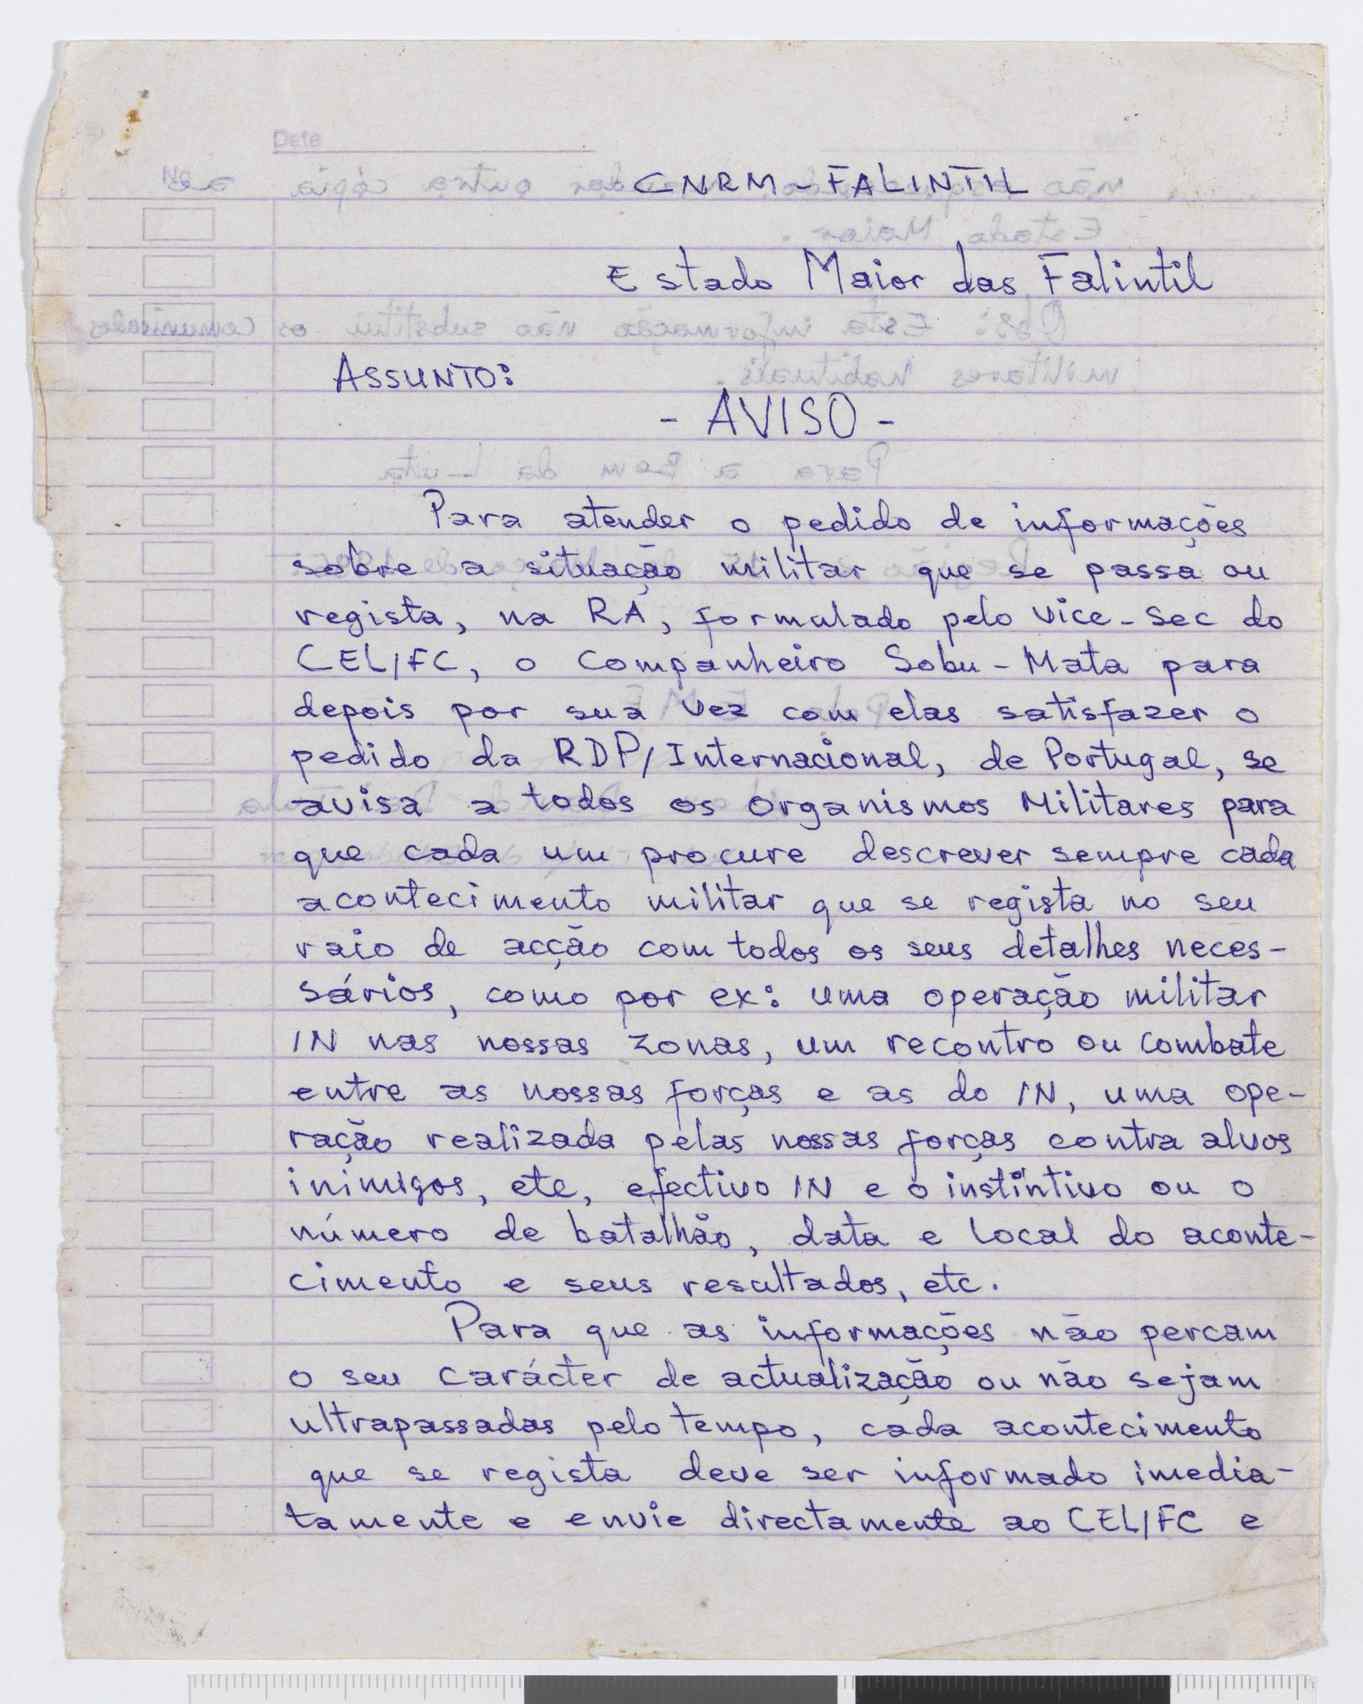 Date
CNRM - FALINTIL
Estado Maior das Falintil
ASSUNTO:
- AVISO -
Para atender o pedido de informações
sobre a situação militar que se passa ou
regista, na RA, formulado pelo vice-sec do
CEL/FC, o companheiro Sobu-Mata para
depois por sua vez com elas satisfazer o
pedido da RDP/Internacional, de Portugal, se
avisa a todos os organismos Militares para
que cada um procure descrever sempre cada
acontecimento militar que se regista no seu
raio de acção com todos os seus detalhes neces-
sários, como por ex: uma operação militar
IN nas nossas zonas, um recontro ou combate
entre as nossas forças e as do IN, uma ope-
ração realizada pelas nossas forças contra alvos
inimigos, etc, efectivo IN e o instintivo ou o
número de batalhão, data e local do aconte-
cimento e seus resultados, etc.
Para que as informações não percam
o seu carácter de actualização ou não sejam
ultrapassadas pelo tempo, cada acontecimento
que se regista deve ser informado imedia-
tamente e envie directamente ao CEL/FC e